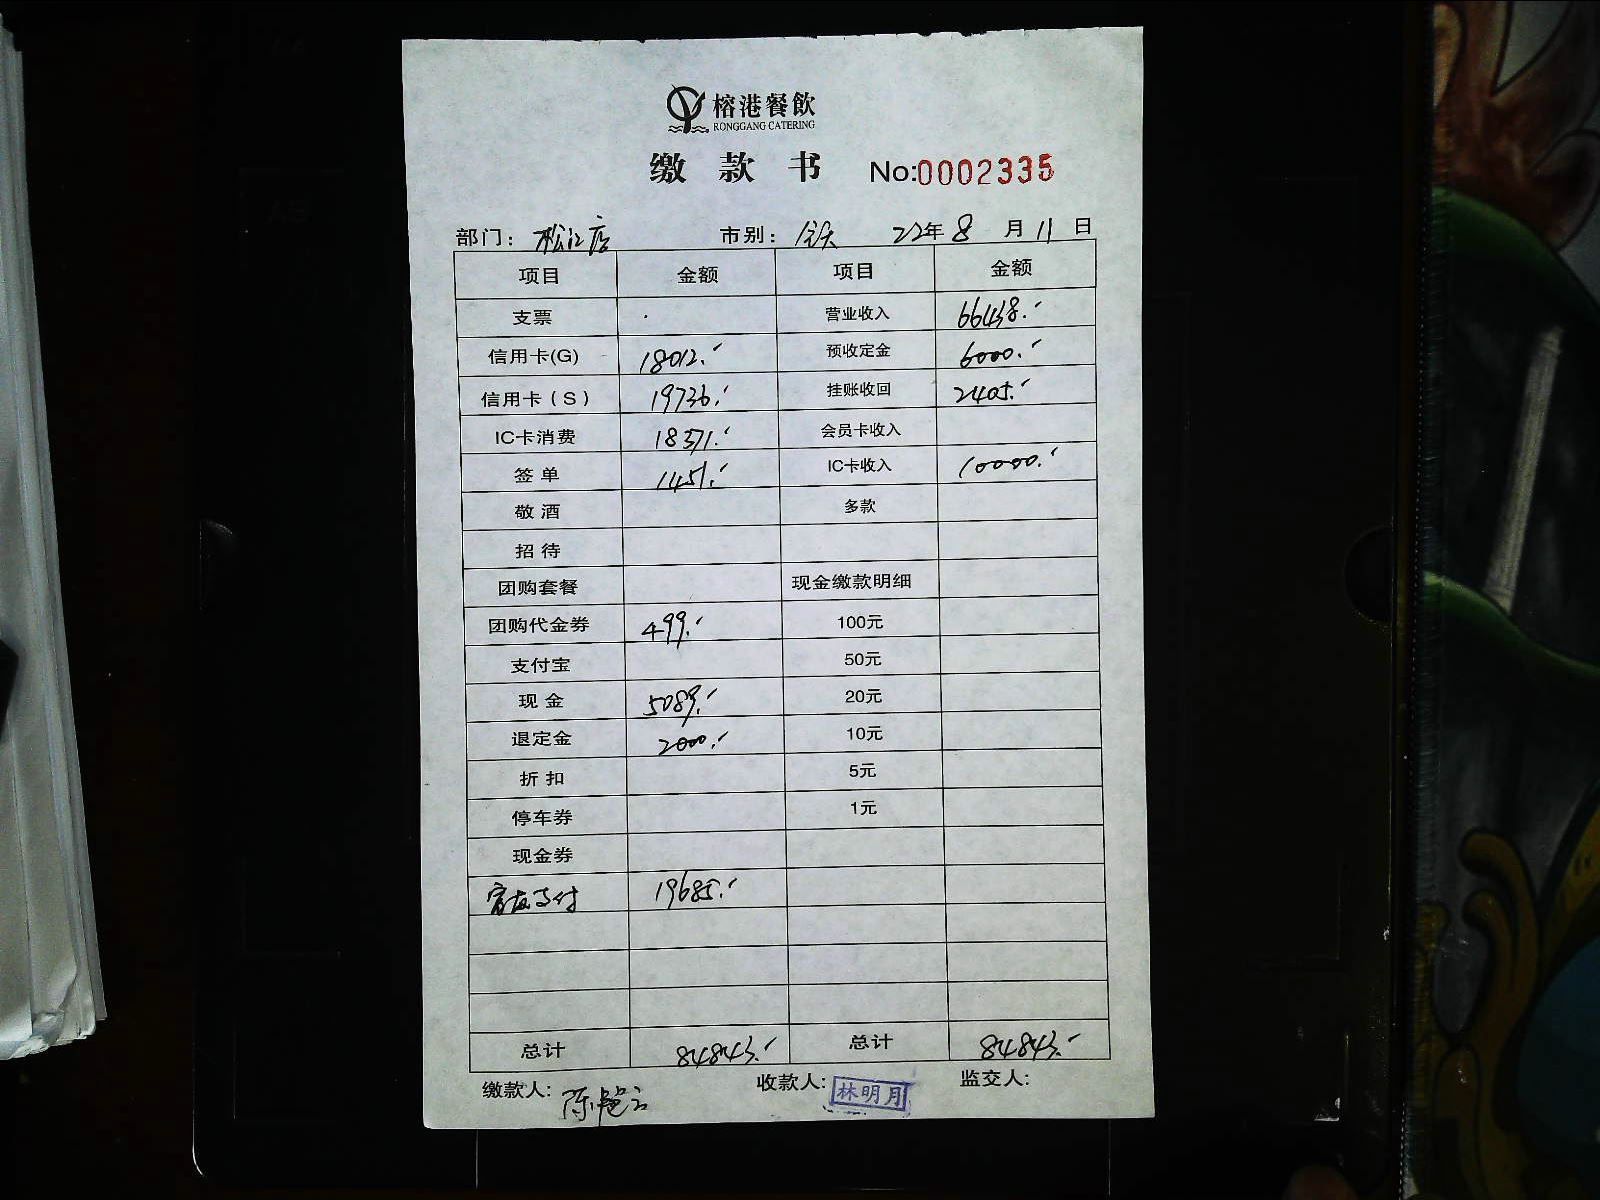 榕港餐飲
RONGGANG CATERING
缴款书 No:0002335
部门: 松江店 市别: 全天 22年 8 月 11 日
项目 金额 项目 金额
支票 营业收入 66438.-
信用卡(G) 18012.- 预收定金 6000.-
信用卡(S) 19736.- 挂账收回 2405.-
IC卡消费 18371.- 会员卡收入
签单 1451.- IC卡收入 10000.-
敬酒 多款
招待
团购套餐 现金缴款明细
团购代金券 499.- 100元
支付宝 50元
现金 5089.- 20元
退定金 2000.- 10元
折扣 5元
停车券 1元
现金券
富友支付 19685.-
总计 84843.- 总计 84843.-
缴款人: 陈 收款人: 林明月 监交人: